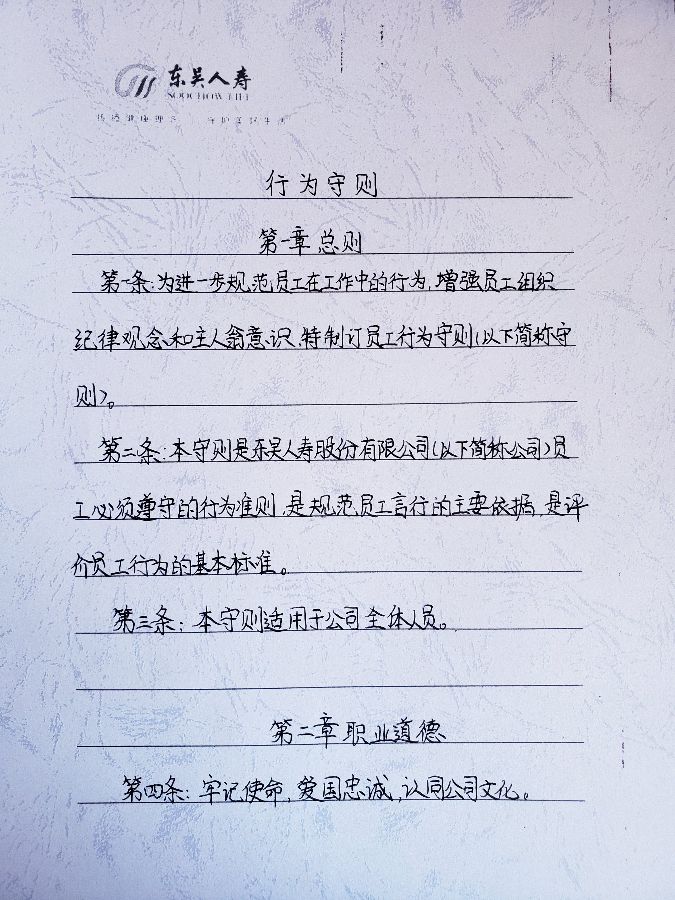 东吴人寿
SOOCHOW LIFE
行为守则
第一章 总则
第一条:为进一步规范员工在工作中的行为,增强员工组织
纪律观念和主人翁意识,特制订员工行为守则(以下简称守
则)。
第二条:本守则是东吴人寿股份有限公司(以下简称公司)员
工必须遵守的行为准则,是规范员工言行的主要依据,是评
价员工行为的基本标准。
第三条:本守则适用于公司全体人员。
第二章 职业道德
第四条:牢记使命,爱国忠诚,认同公司文化。